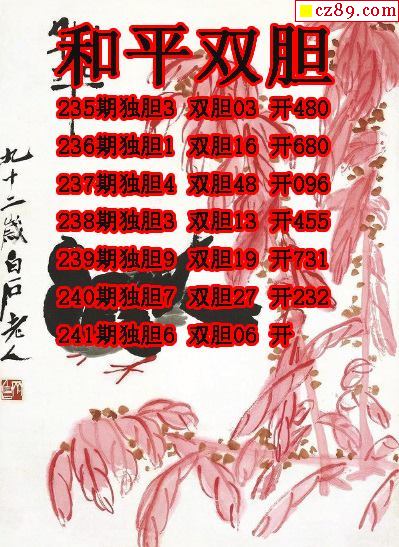 cz89.com
和平双胆
235期独胆3 双胆03 开480
236期独胆1 双胆16 开680
237期独胆4 双胆48 开096
238期独胆3 双胆13 开455
239期独胆9 双胆19 开731
240期独胆7 双胆27 开232
241期独胆6 双胆06 开
九十二岁白石老人